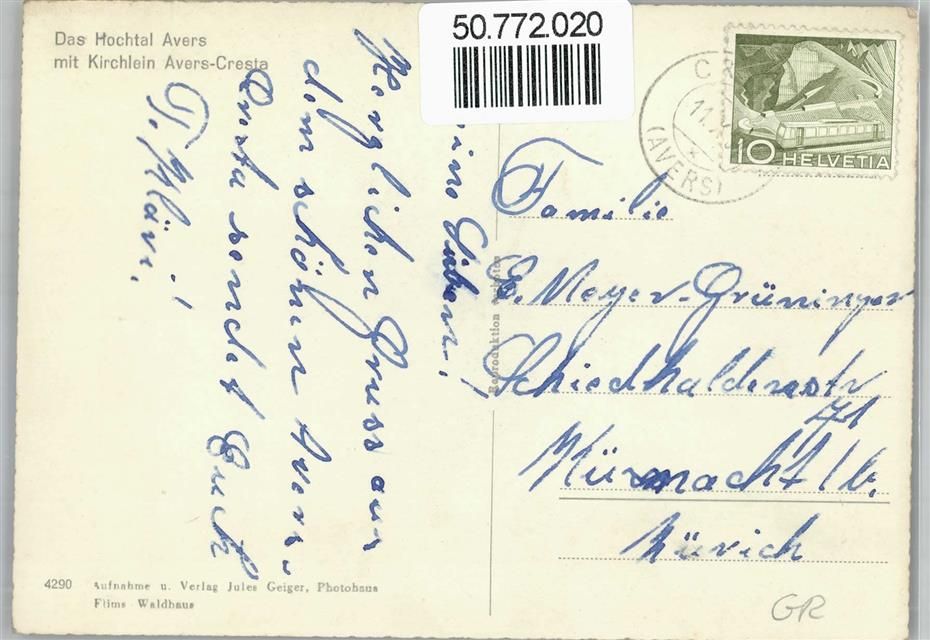 Das Hochtal Avers
mit Kirchlein Avers-Cresta
50.772.020
10 HELVETIA
11.
(AVERS)
Lieben!
Herzlichen Gruss aus
dem schönen Avers-
Cresta sendet Euch
Familie
E. Meyer-Grüninger
Schiedhaldenstr
71
Küsnacht / b.
Zürich
Reproduktion verboten
4290 Aufnahme u. Verlag Jules Geiger, Photohaus
Flims-Waldhaus
GR